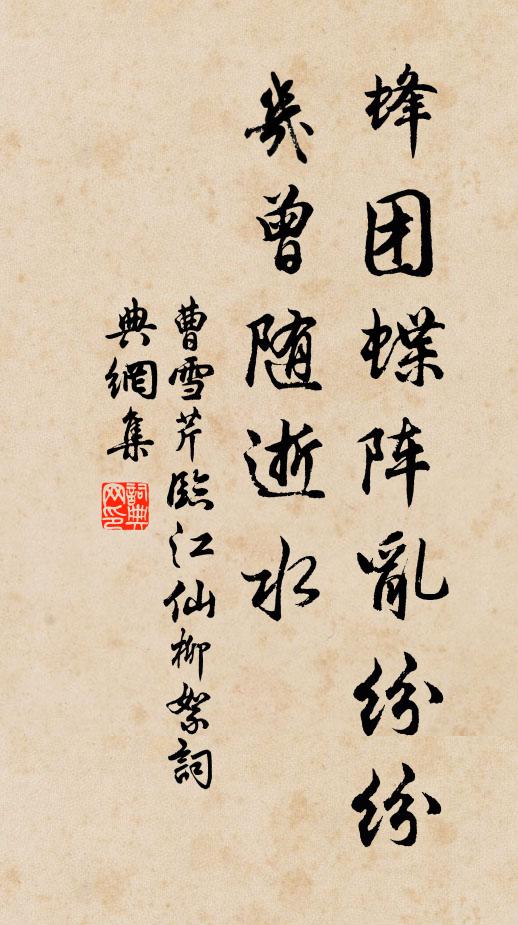 蜂团蝶阵乱纷纷
几曾随逝水
曹雪芹臨江仙柳絮詞
典網集
詞典网印